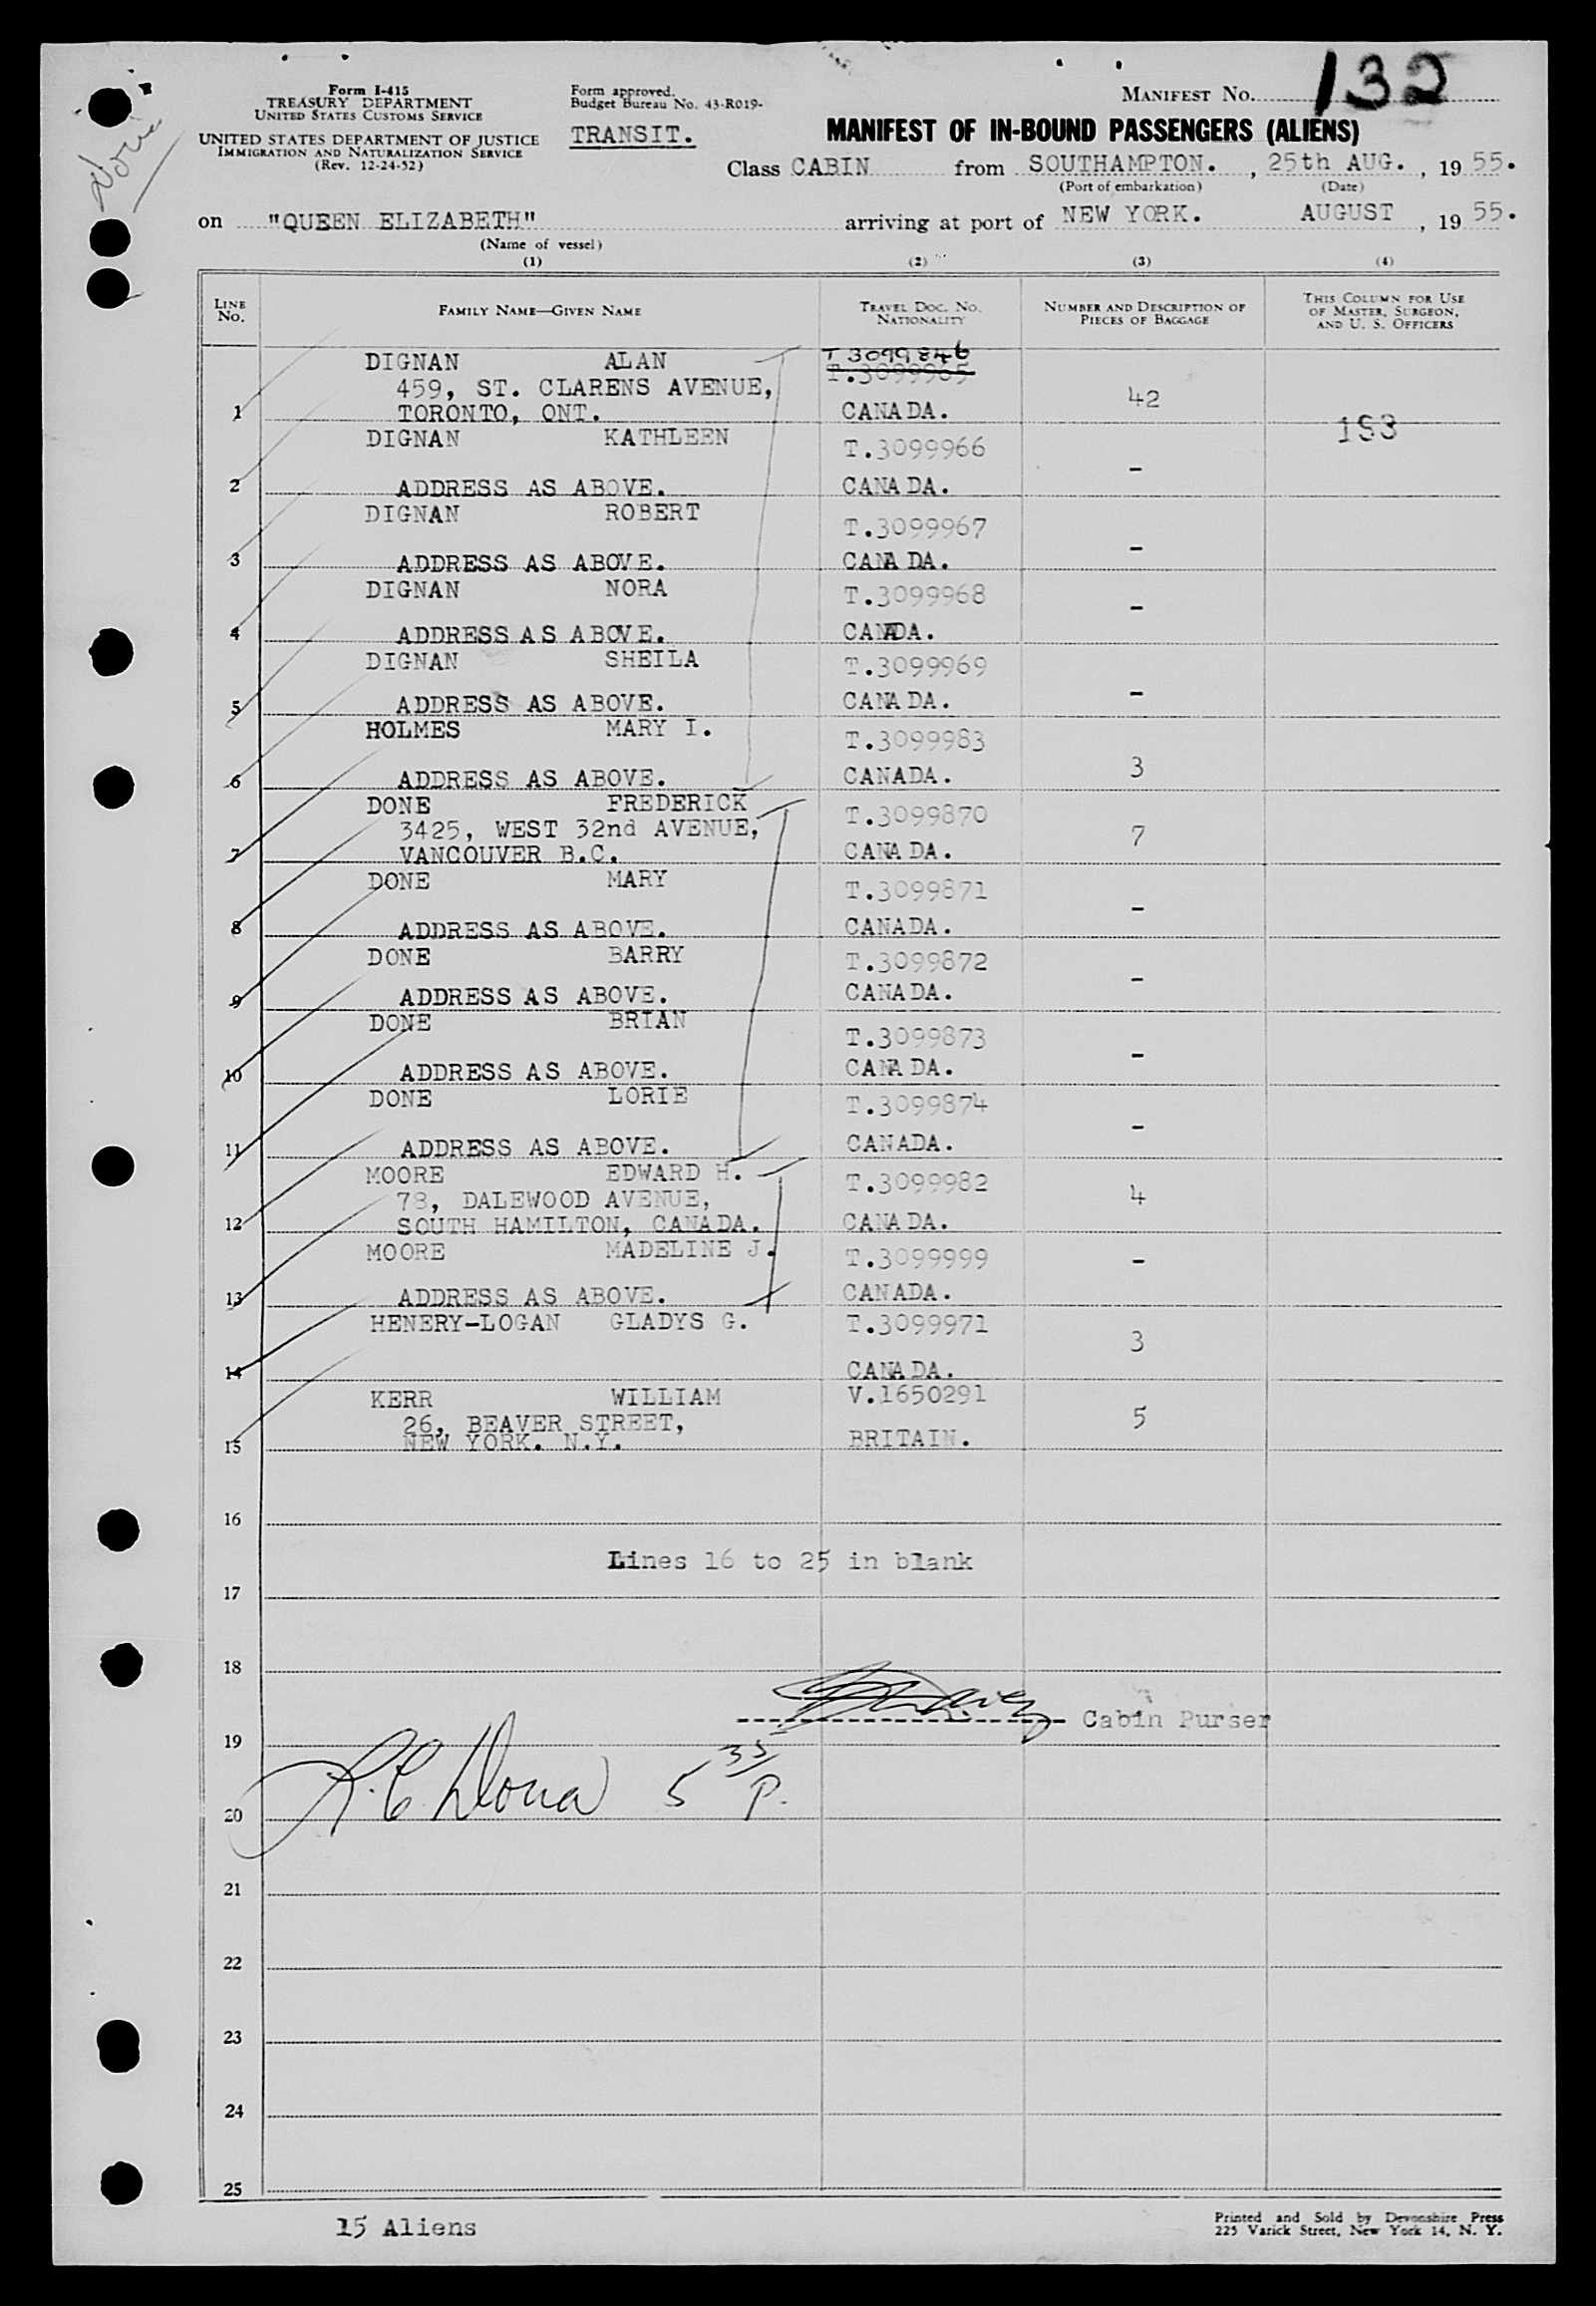 132
Form I-415
TREASURY DEPARTMENT
UNITED STATES CUSTOMS SERVICE
UNITED STATES DEPARTMENT OF JUSTICE
IMMIGRATION AND NATURALIZATION SERVICE
(Rev. 12-24-52)
Form approved.
Budget Bureau No. 43-R019-
TRANSIT.
MANIFEST No.
MANIFEST OF IN-BOUND PASSENGERS (ALIENS)
Class CABIN from SOUTHAMPTON. , 25th AUG. , 19 55.
(Port of embarkation) (Date)
on "QUEEN ELIZABETH" arriving at port of NEW YORK. AUGUST , 19 55.
(Name of vessel)
(1) (2) (3) (4)
LINE No. FAMILY NAME—GIVEN NAME TRAVEL DOC. No. NATIONALITY NUMBER AND DESCRIPTION OF PIECES OF BAGGAGE THIS COLUMN FOR USE OF MASTER, SURGEON, AND U. S. OFFICERS
DIGNAN ALAN T 3099846
T.3099965
459, ST. CLARENS AVENUE, 42
1 TORONTO, ONT. CANADA. 193
DIGNAN KATHLEEN T.3099966 -
2 ADDRESS AS ABOVE. CANADA.
DIGNAN ROBERT T.3099967 -
3 ADDRESS AS ABOVE. CANADA.
DIGNAN NORA T.3099968 -
4 ADDRESS AS ABOVE. CANADA.
DIGNAN SHEILA T.3099969 -
5 ADDRESS AS ABOVE. CANADA.
HOLMES MARY I. T.3099983
6 ADDRESS AS ABOVE. CANADA. 3
DONE FREDERICK T.3099870
3425, WEST 32nd AVENUE, 7
7 VANCOUVER B.C. CANADA.
DONE MARY T.3099871 -
8 ADDRESS AS ABOVE. CANADA.
DONE BARRY T.3099872 -
9 ADDRESS AS ABOVE. CANADA.
DONE BRIAN T.3099873 -
10 ADDRESS AS ABOVE. CANADA.
DONE LORIE T.3099874 -
11 ADDRESS AS ABOVE. CANADA.
MOORE EDWARD H. T.3099982
78, DALEWOOD AVENUE, 4
12 SOUTH HAMILTON, CANADA. CANADA.
MOORE MADELINE J. T.3099999 -
13 ADDRESS AS ABOVE. CANADA.
HENERY-LOGAN GLADYS G. T.3099971 3
14 CANADA.
KERR WILLIAM V.1650291
26, BEAVER STREET, 5
15 NEW YORK. N.Y. BRITAIN.
16
Lines 16 to 25 in blank
17
18
Cabin Purser
19
5 35/P.
20
21
22
23
24
25
15 Aliens
Printed and Sold by Devonshire Press
225 Varick Street, New York 14, N. Y.